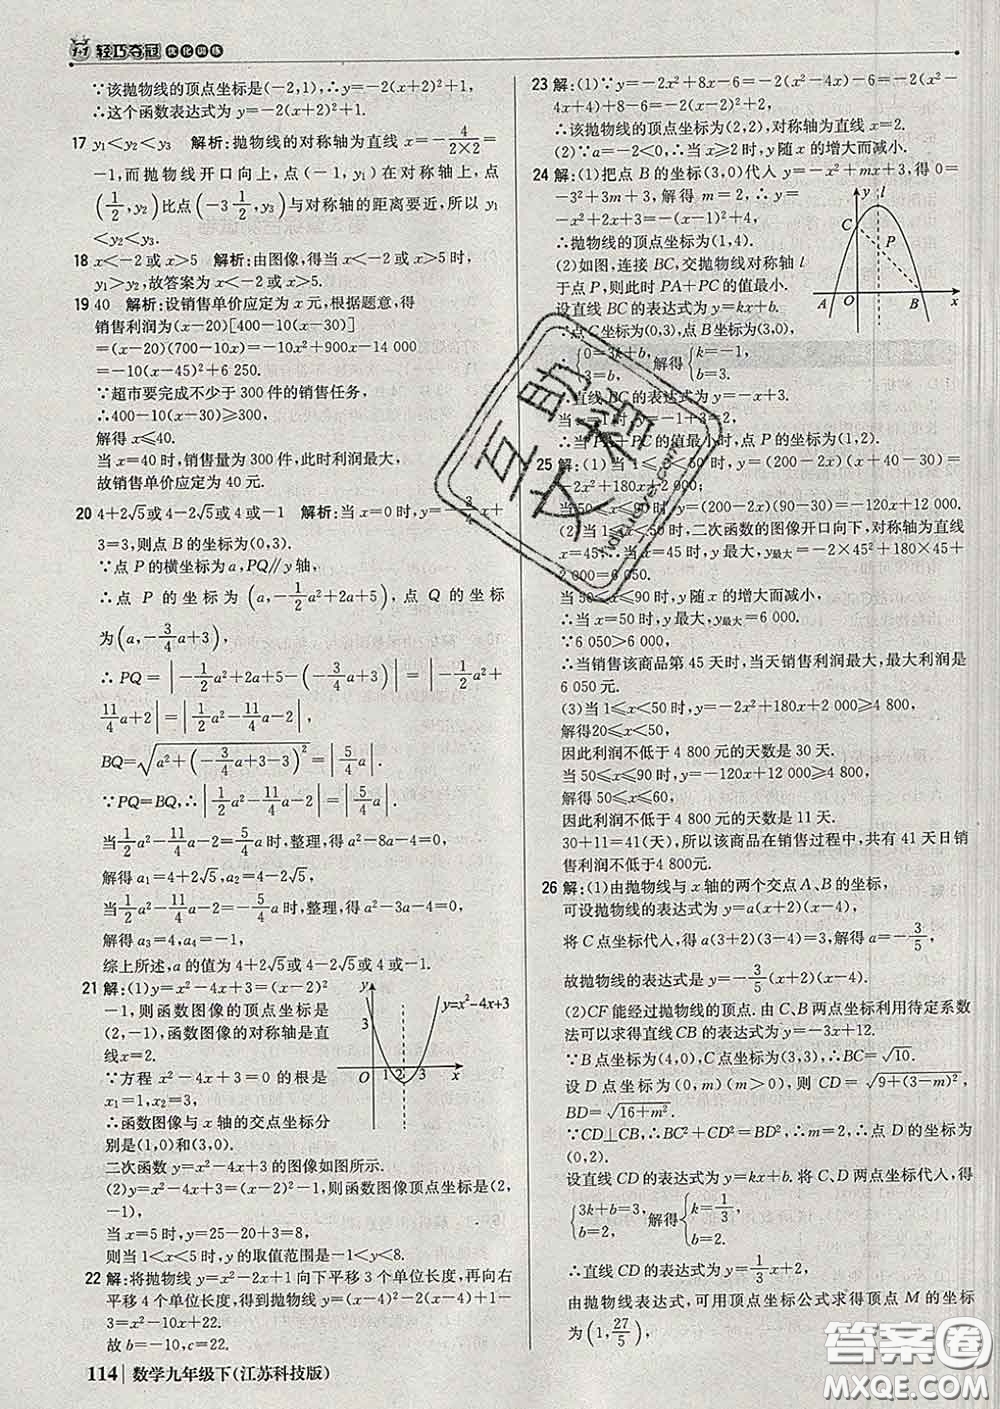 1+1 轻巧夺冠 优化训练
∵该抛物线的顶点坐标是(-2,1),∴y=-2(x+2)²+1.
∴这个函数表达式为 y=-2(x+2)²+1.
17 y₁<y₂<y₃ 解析:抛物线的对称轴为直线 x=-4/(2×2)=
-1,而抛物线开口向上,点(-1,y₁)在对称轴上,点
(1/2,y₂)比点(-3 1/2,y₃)与对称轴的距离要近,所以 y₁
<y₂<y₃.
18 x<-2 或 x>5 解析:由图像,得当 x<-2 或 x>5 时,
y₁>y₂,故答案为 x<-2 或 x>5.
19 40 解析:设销售单价应定为 x 元,根据题意,得
销售利润为(x-20)[400-10(x-30)]
=(x-20)(700-10x)=-10x²+900x-14 000
=-10(x-45)²+6 250.
∵超市要完成不少于 300 件的销售任务,
∴400-10(x-30)≥300,
解得 x≤40.
当 x=40 时,销售量为 300 件,此时利润最大,
故销售单价应定为 40 元.
20 4+2√5或 4-2√5或 4 或-1 解析:当 x=0 时,y=-3/4x+
3=3,则点 B 的坐标为(0,3).
∵点 P 的横坐标为 a,PQ∥y 轴,
∴点 P 的坐标为(a,-1/2a²+2a+5),点 Q 的坐标
为(a,-3/4a+3),
∴PQ=|-1/2a²+2a+5-(-3/4a+3)|=|-1/2a²+
11/4a+2|=|1/2a²-11/4a-2|,
BQ=√(a²+(-3/4a+3-3)²)=|5/4a|.
∵PQ=BQ,∴|1/2a²-11/4a-2|=|5/4a|.
当1/2a²-11/4a-2=5/4a 时,整理,得 a²-8a-4=0,
解得 a₁=4+2√5,a₂=4-2√5,
当1/2a²-11/4a-2=-5/4a 时,整理,得 a²-3a-4=0,
解得 a₃=4,a₄=-1,
综上所述,a 的值为 4+2√5或 4-2√5或 4 或-1.
21 解:(1)y=x²-4x+3=(x-2)²
-1,则函数图像的顶点坐标是
(2,-1),函数图像的对称轴是直
线x=2.
∵方程 x²-4x+3=0 的根是
x₁=1,x₂=3,
∴函数图像与 x 轴的交点坐标分
别是(1,0)和(3,0).
y
y=x²-4x+3
O 1 2 3 x
二次函数 y=x²-4x+3 的图像如图所示.
(2)y=x²-4x+3=(x-2)²-1,则函数图像顶点坐标是(2,
-1),
当 x=5 时,y=25-20+3=8,
则当 1<x<5 时,y 的取值范围是-1<y<8.
22 解:将抛物线 y=x²-2x+1 向下平移 3 个单位长度,再向右
平移 4 个单位长度,得到抛物线 y=(x-4)²-2(x-4)+1-
3=x²-10x+22.
故 b=-10,c=22.
114 数学九年级下(江苏科技版)
23 解:(1)∵y=-2x²+8x-6=-2(x²-4x)-6=-2(x²-
4x+4)+8-6=-2(x-2)²+2,
∴该抛物线的顶点坐标为(2,2),对称轴为直线 x=2.
(2)∵a=-2<0,∴当 x≥2 时,y 随 x 的增大而减小.
24 解:(1)把点 B 的坐标(3,0)代人 y=-x²+mx+3,得 0=
-3²+3m+3,解得 m=2,∴y=
-x²+2x+3=-(x-1)²+4.
∴抛物线的顶点坐标为(1,4).
(2)如图,连接 BC,交抛物线对称轴 l
于点 P,则此时 PA+PC 的值最小.
设直线 BC 的表达式为 y=kx+b.
y l
C P
A O B x
∵点 C 坐标为(0,3),点 B 坐标为(3,0),
∴{0=3k+b, 3=b. 解得{k=-1, b=3.
∴直线 BC 的表达式为 y=-x+3.
当 x=1 时,y=-1+3=2.
∴当 PA+PC 的值最小时,点 P 的坐标为(1,2).
25 解:(1)当 1≤x<50 时,y=(200-2x)(x+40-30)=
-2x²+180x+2 000;
当 50≤x≤90 时,y=(200-2x)(90-30)=-120x+12 000.
(2)当 1≤x<50 时,二次函数的图像开口向下,对称轴为直线
x=45,∴当 x=45 时,y 最大,y最大=-2×45²+180×45+
2 000=6 050.
当 50≤x≤90 时,y 随 x 的增大而减小,
∴当 x=50 时,y 最大,y最大=6 000.
∵6 050>6 000,
∴当销售该商品第 45 天时,当天销售利润最大,最大利润是
6 050 元.
(3)当 1≤x<50 时,y=-2x²+180x+2 000≥4 800,
解得20≤x<50,
因此利润不低于 4 800 元的天数是 30 天.
当 50≤x≤90 时,y=-120x+12 000≥4 800,
解得 50≤x≤60,
因此利润不低于 4 800 元的天数是 11 天.
30+11=41(天),所以该商品在销售过程中,共有 41 天日销
售利润不低于4 800元.
26 解:(1)由抛物线与 x 轴的两个交点 A、B 的坐标,
可设抛物线的表达式为 y=a(x+2)(x-4),
将 C 点坐标代人,得 a(3+2)(3-4)=3,解得a=-3/5,
故抛物线的表达式是 y=-3/5(x+2)(x-4).
(2)CF能经过抛物线的顶点. 由 C、B 两点坐标利用待定系数
法可以求得直线 CB 的表达式为 y=-3x+12.
∵B 点坐标为(4,0),C 点坐标为(3,3),∴BC=√10.
设 D 点坐标为(0,m)(m>0),则 CD=√(9+(3-m)²),
BD=√(16+m²).
∵CD⊥CB,∴BC²+CD²=BD²,∴点 D 的坐标为
(0,2).
设直线 CD 的表达式为 y=kx+b. 将 C、D 两点坐标代人,得
{3k+b=3, b=2. 解得{k=1/3, b=2.
∴直线 CD 的表达式为 y=1/3x+2.
由抛物线表达式,可用顶点坐标公式求得顶点 M 的坐标
为(1,27/5),
互助文程
答案圈
MXQE.COM